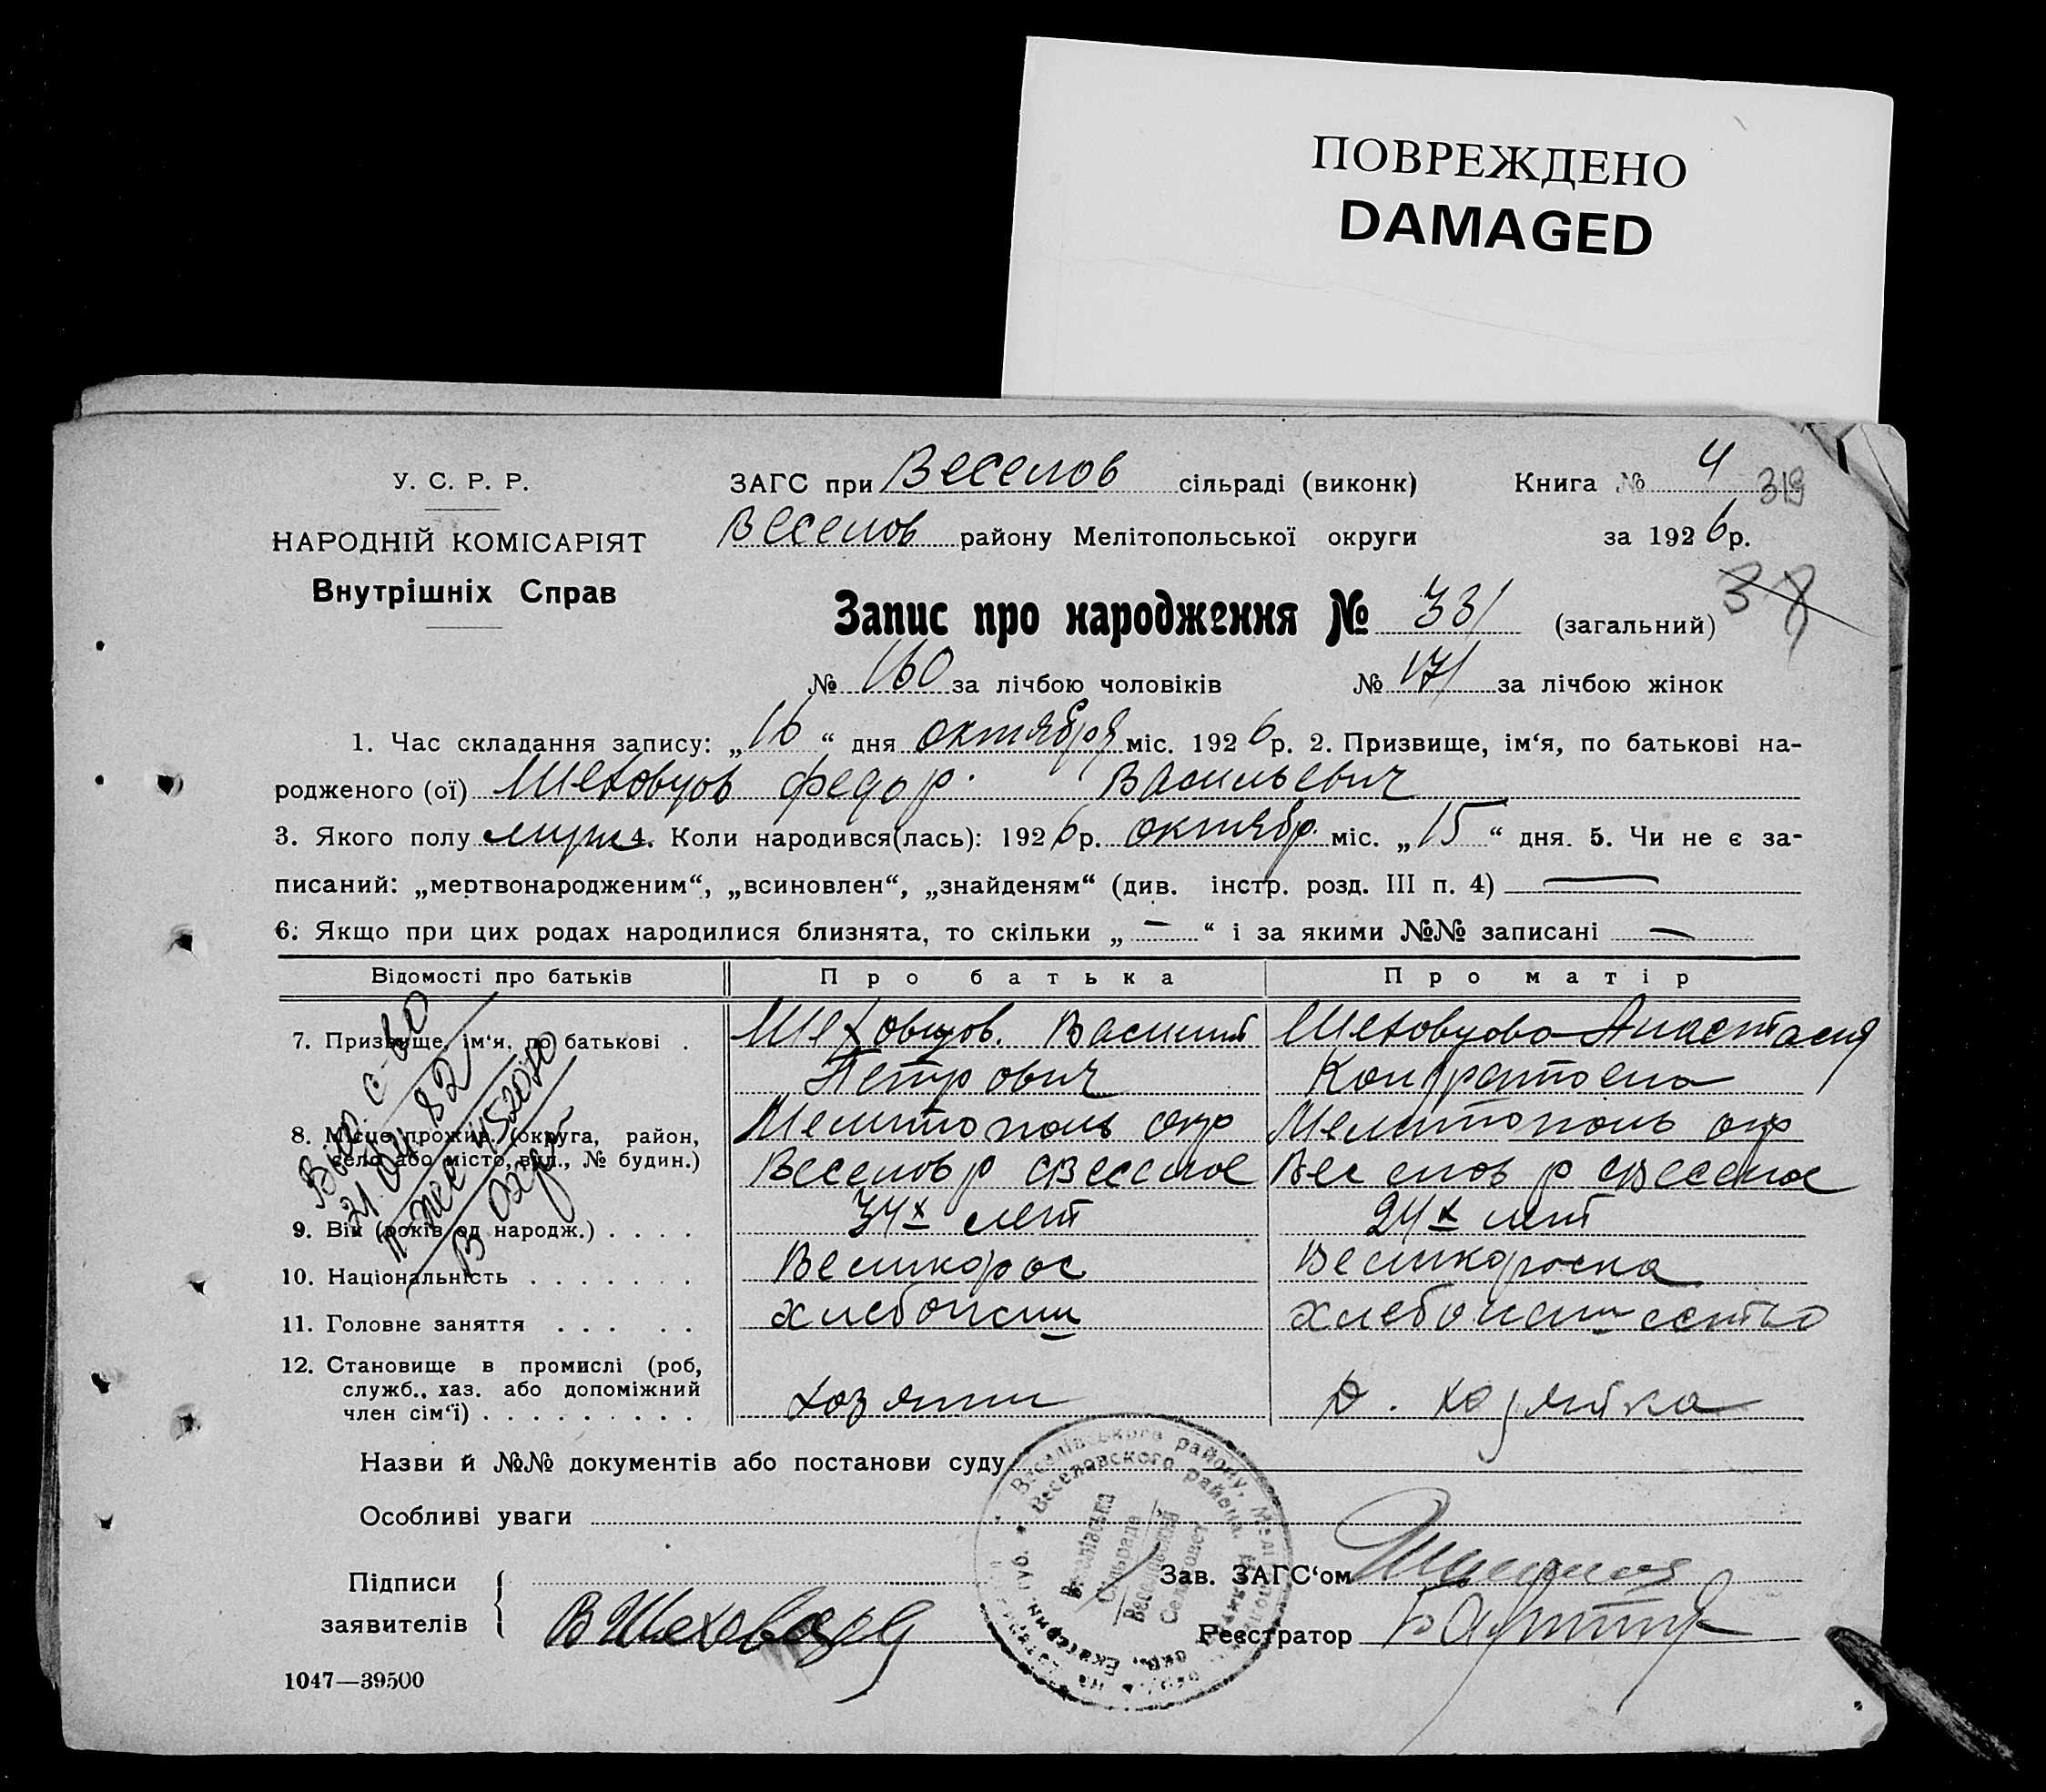 ПОВРЕЖДЕНО
DAMAGED
У. С. Р. Р.
НАРОДНІЙ КОМІСАРІЯТ
Внутрішніх Справ
ЗАГС при Веселов сільраді (виконк) Книга № 4 319
Веселов району Мелітопольської округи за 1926 р.
38
Запис про народження № 331 (загальний)
№ 160 за лічбою чоловіків № 171 за лічбою жінок
1. Час складання запису: „16“ дня октября міс. 1926 р. 2. Призвище, ім‘я, по батькові на-
родженого (ої) Шеховцов Федор Васильевич
3. Якого полу муж 4. Коли народився(лась): 1926 р. октябр міс. „15“ дня. 5. Чи не є за-
писаний: „мертвонародженим“, „всиновлен“, „знайденям“ (див. інстр. розд. III п. 4) —
6. Якщо при цих родах народилися близнята, то скільки „—“ і за якими №№ записані —
Відомості про батьків Про батька Про матір
7. Призвище, ім‘я, по батькові . Шеховцов. Василий Шеховцова Анастасия
Петрович Кондратьевна
8. Місце прожив. (округа, район, Мелитополь окр Мелитополь окр
село або місто, вул., № будин.) Веселов р с Веселое Веселов р с Веселое
9. Вік (років од народж.) . . . . 34х лет 24х лет
10. Національність . . . . . . . Великорос Великороска
11. Головне заняття . . . . . хлебопаш хлебопашество
12. Становище в промислі (роб,
служб., хаз. або допоміжний
член сім‘ї) . . . . . . . . . хозяин д. хозяйка
Назви й №№ документів або постанови суду
Особливі уваги
Підписи
заявителів В Шеховцов
Зав. ЗАГС‘ом
Реєстратор
Веселівського району, Меліт
Веселовского района,
Веселівська
Сільрада
Веселовский
Сельсовет
1047—39500